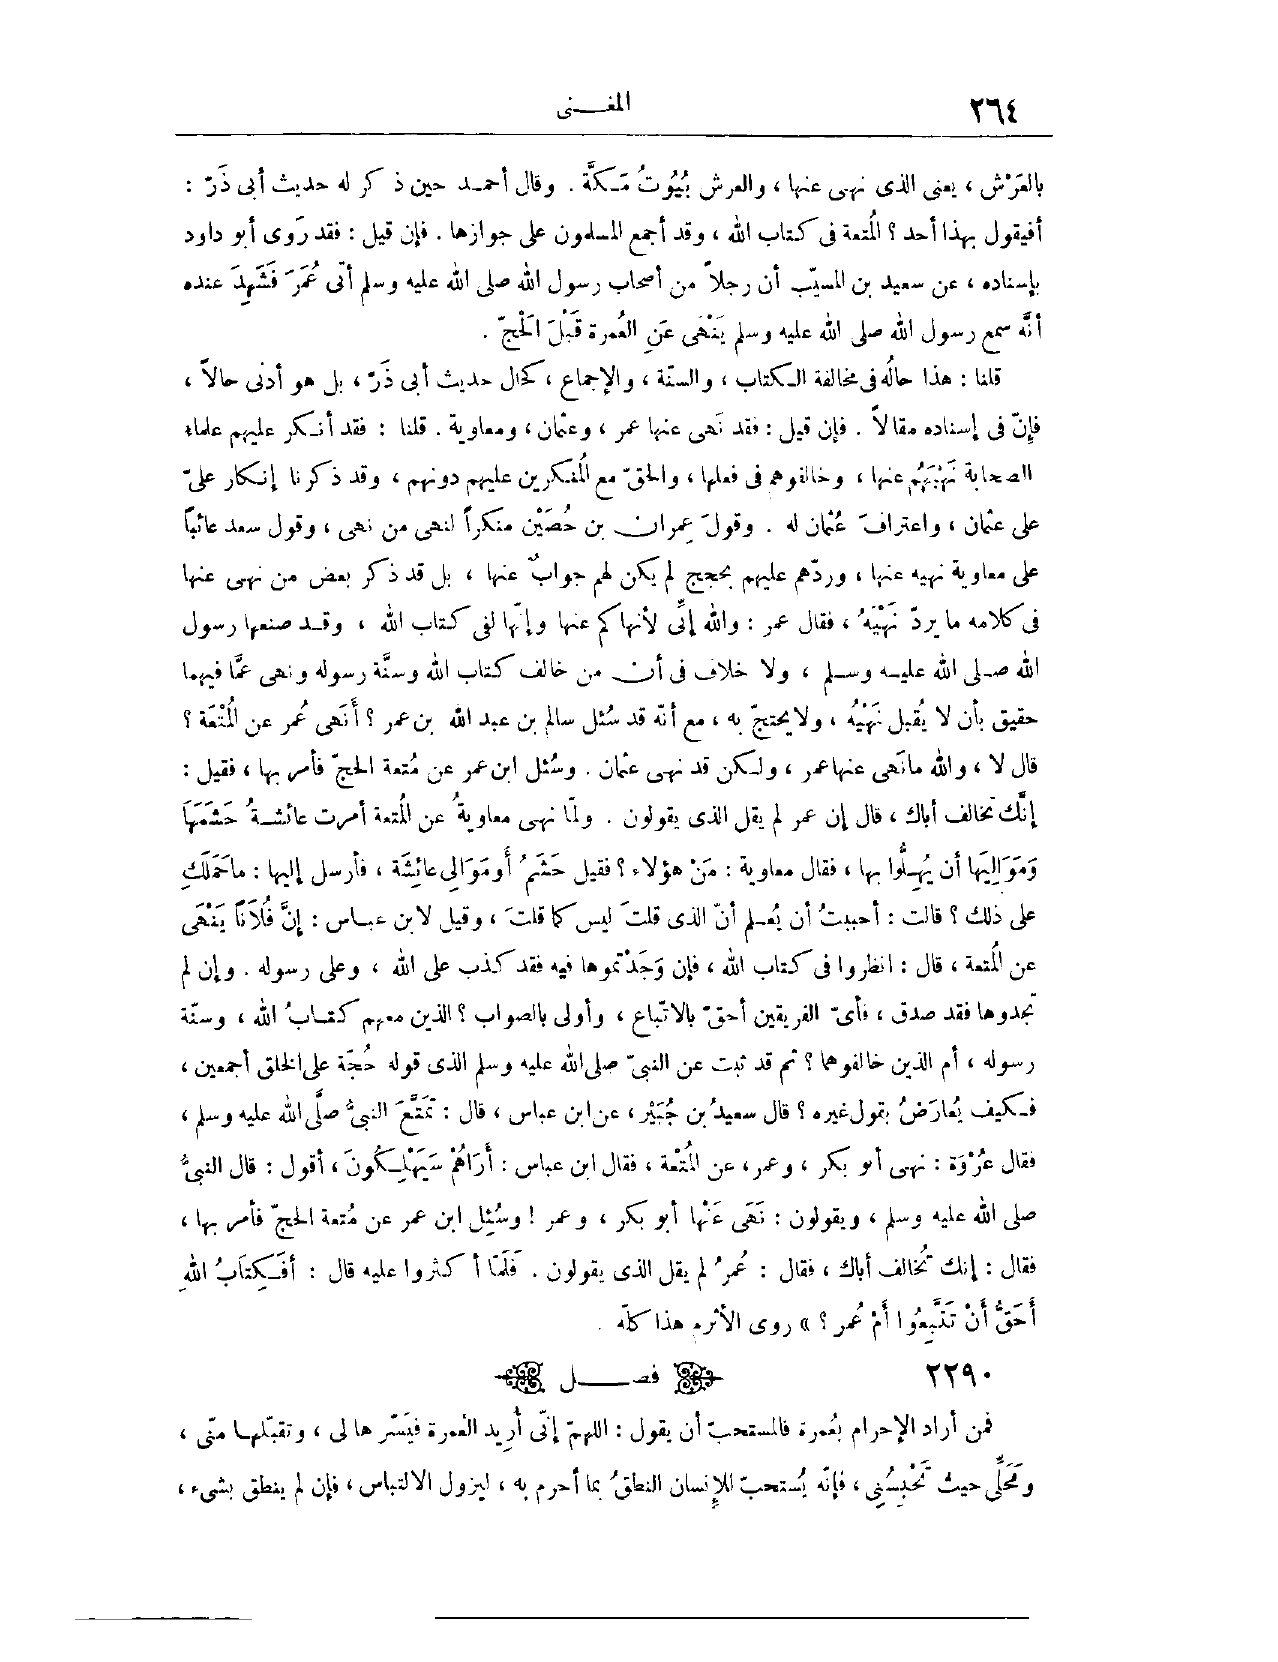 ٢٦٤
المغـــنى
بالعَرْش ، يعنى الذى نهى عنها ، والعرش بُيُوتُ مَـكَّةَ . وقال أحمـد حين ذ كر له حديث أبى ذَرّ :
أفيقول بهذا أحد ؟ المُتعة فى كتاب الله ، وقد أجمع المسلمون على جوازها . فإن قيل : فقد رَوى أبو داود
بإسناده ، عن سعيد بن المسيّب أن رجلاً من أصحاب رسول الله صلى الله عليه وسلم أتى عُمَرَ فَشَهِدَ عنده
أنَّه سمع رسول الله صلى الله عليه وسلم يَنْهَى عَنِ العُمرة قَبْلَ الَحْجّ .
قلنا : هذا حالُه فى مخالفة الـكتاب ، والسنّة ، والإجماع ، كحال حديث أبى ذَرّ ، بل هو أدنى حالاً ،
فإنّ فى إسناده مقالاً . فإن قيل : فقد نَهى عنها عمر ، وعثمان ، ومعاوية . قلنا : فقد أنـكر عليهم علماء
الصحابة نَهْيَهُم عنها ، وخالفوهم فى فعلها ، والحقّ مع المُنكرين عليهم دونهم ، وقد ذكرنا إنـكار علىّ
على عثمان ، واعترافَ عُثمان له . وقولَ عِمران بن حُصَيْن منكراً لنهى من نهى ، وقول سعد عائباً
على معاوية نهيه عنها ، وردّهم عليهم بحجج لم يكن لهم جوابٌ عنها ، بل قد ذكر بعض من نهى عنها
فى كلامه ما يردّ نَهْيَهُ ، فقال عمر : والله إنِّى لأنهاكم عنها وإنّها لفى كتاب الله ، وقـد صنعها رسول
الله صـلى الله عليـه وسـلم ، ولا خلاف فى أن من خالف كتاب الله وسنَّة رسوله ونهى عمَّا فيهما
حقيق بأن لا يُقبل نَهْيُهُ ، ولا يحتجّ به ، مع أنّه قد سُئل سالم بن عبد الله بن عمر ؟ أَنَهَى عُمر عن المُتْعَة ؟
قال لا ، والله ما نَهى عنها عمر ، ولـكن قد نهى عثمان . وسُئل ابن عمر عن مُتعة الحجّ فأمر بها ، فقيل :
إنَّك تخالف أباك ، قال إن عمر لم يقل الذى يقولون . ولمّا نهى معاويةُ عن المُتعة أمرت عائشـةُ حَشَمَهَا
وَمَوَالِيَهَا أن يُهِـلُّوا بها ، فقال معاوية : مَنْ هؤلاء ؟ فقيل حَشَمُ أَومَوَالى عائِشَة ، فأرسل إليها : ماحَمَلَكِ
على ذلك ؟ قالت : أحببتُ أن يُعـلم أنّ الذى قلتَ ليس كما قلتَ ، وقيل لابن عبـاس : إنَّ فُلَانًا يَنْهَى
عن المُتعة ، قال : انظروا فى كتاب الله ، فإن وَجَدْتموها فيه فقد كذب على الله ، وعلى رسوله . وإن لم
تجدوها فقد صدق ، فأىّ الفريقين أحقّ بالاتّباع ، وأولى بالصواب ؟ الذين معهم كتـابُ الله ، وسنّة
رسوله ، أم الذين خالفوهما ؟ ثم قد ثبت عن النبىّ صلى الله عليه وسلم الذى قوله حُجّة على الخلق أجمعين ،
فـكيف يُعارَضُ بقول غيره ؟ قال سعيدُ بن جُبَيْر ، عن ابن عباس ، قال : تَمَتَّعَ النبىُّ صلَّى الله عليه وسلم ،
فقال عُرْوَة : نهى أبو بكر ، وعمر ، عن المُتْعة ، فقال ابن عباس : أَرَاهُمْ سَيَهْلِـكُونَ ، أقول : قال النبىُّ
صلى الله عليه وسلم ، ويقولون : نَهَى عَنْها أبو بكر ، وعمر ! وسُئِل ابن عمر عن مُتعة الحجّ فأمر بها ،
فقال : إنك تُخالف أباك ، فقال : عُمرُ لم يقل الذى يقولون . فَلَمّا أ كثروا عليه قال : أفَـكِتَابُ اللهِ
أَحَقُّ أَنْ تَتَّبِعُوا أَمْ عُمر ؟ » روى الأثرم هذا كلّه .
٢٢٩٠ فصـــل
فمن أراد الإحرام بعُمرة فالمستحبّ أن يقول : اللهمّ إنّى أُرِيد العُمرة فيَسّر ها لى ، وتقبّلها منّى ،
ومَحَلِّى حيث تَحْبِسُنِى ، فإنّه يُستحبّ للإِنسان النطقُ بما أحرم به ، ليزول الالتباس ، فإن لم ينطق بشىء ،